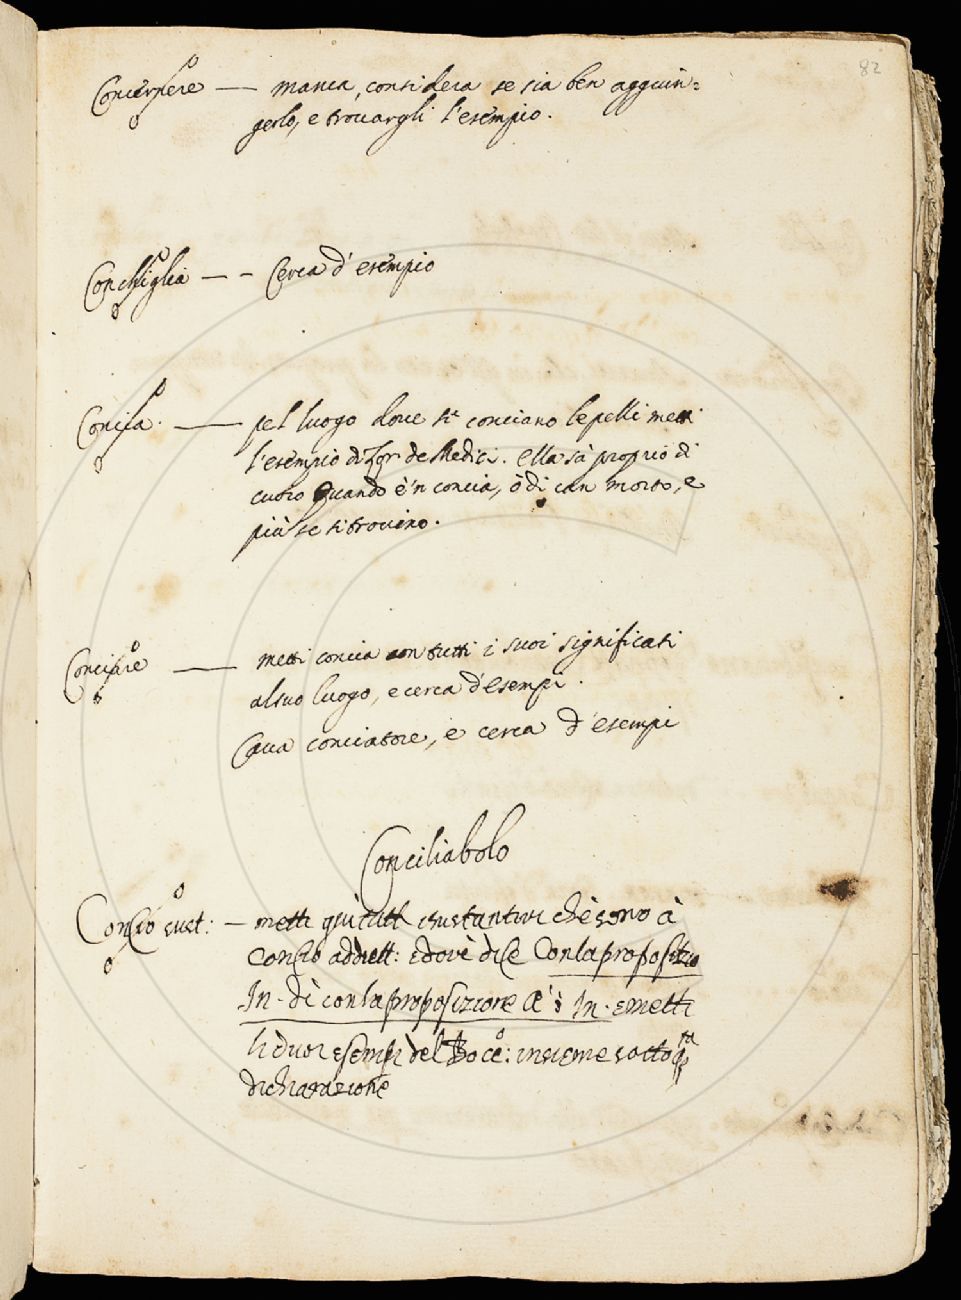 82
Concernere — manca, considera se sia ben aggiun=
gerlo, e trovargli l'esempio.
Conchiglia — - Cerca d'esempio
Concia. — pel luogo dove si conciano le pelli metti
l'esempio di Lor. de Medici. Ella sà proprio di
cuoio quando è'n concia, ò di can morto, e
più se si trovino.
Conciare — metti concia con tutti i suoi significati
al suo luogo, e cerca d'esempi.
Cava conciatore, e cerca d'esempi
Conciliabolo
Concio sust: — metti qui tutti i sustantivi che sono à
Concio addiett: e dov'è dice Con la proposizio
In - dì con la proposizione A ò In - e metti
li duoi esempi del Bocc: insieme sotto
dichiarazione